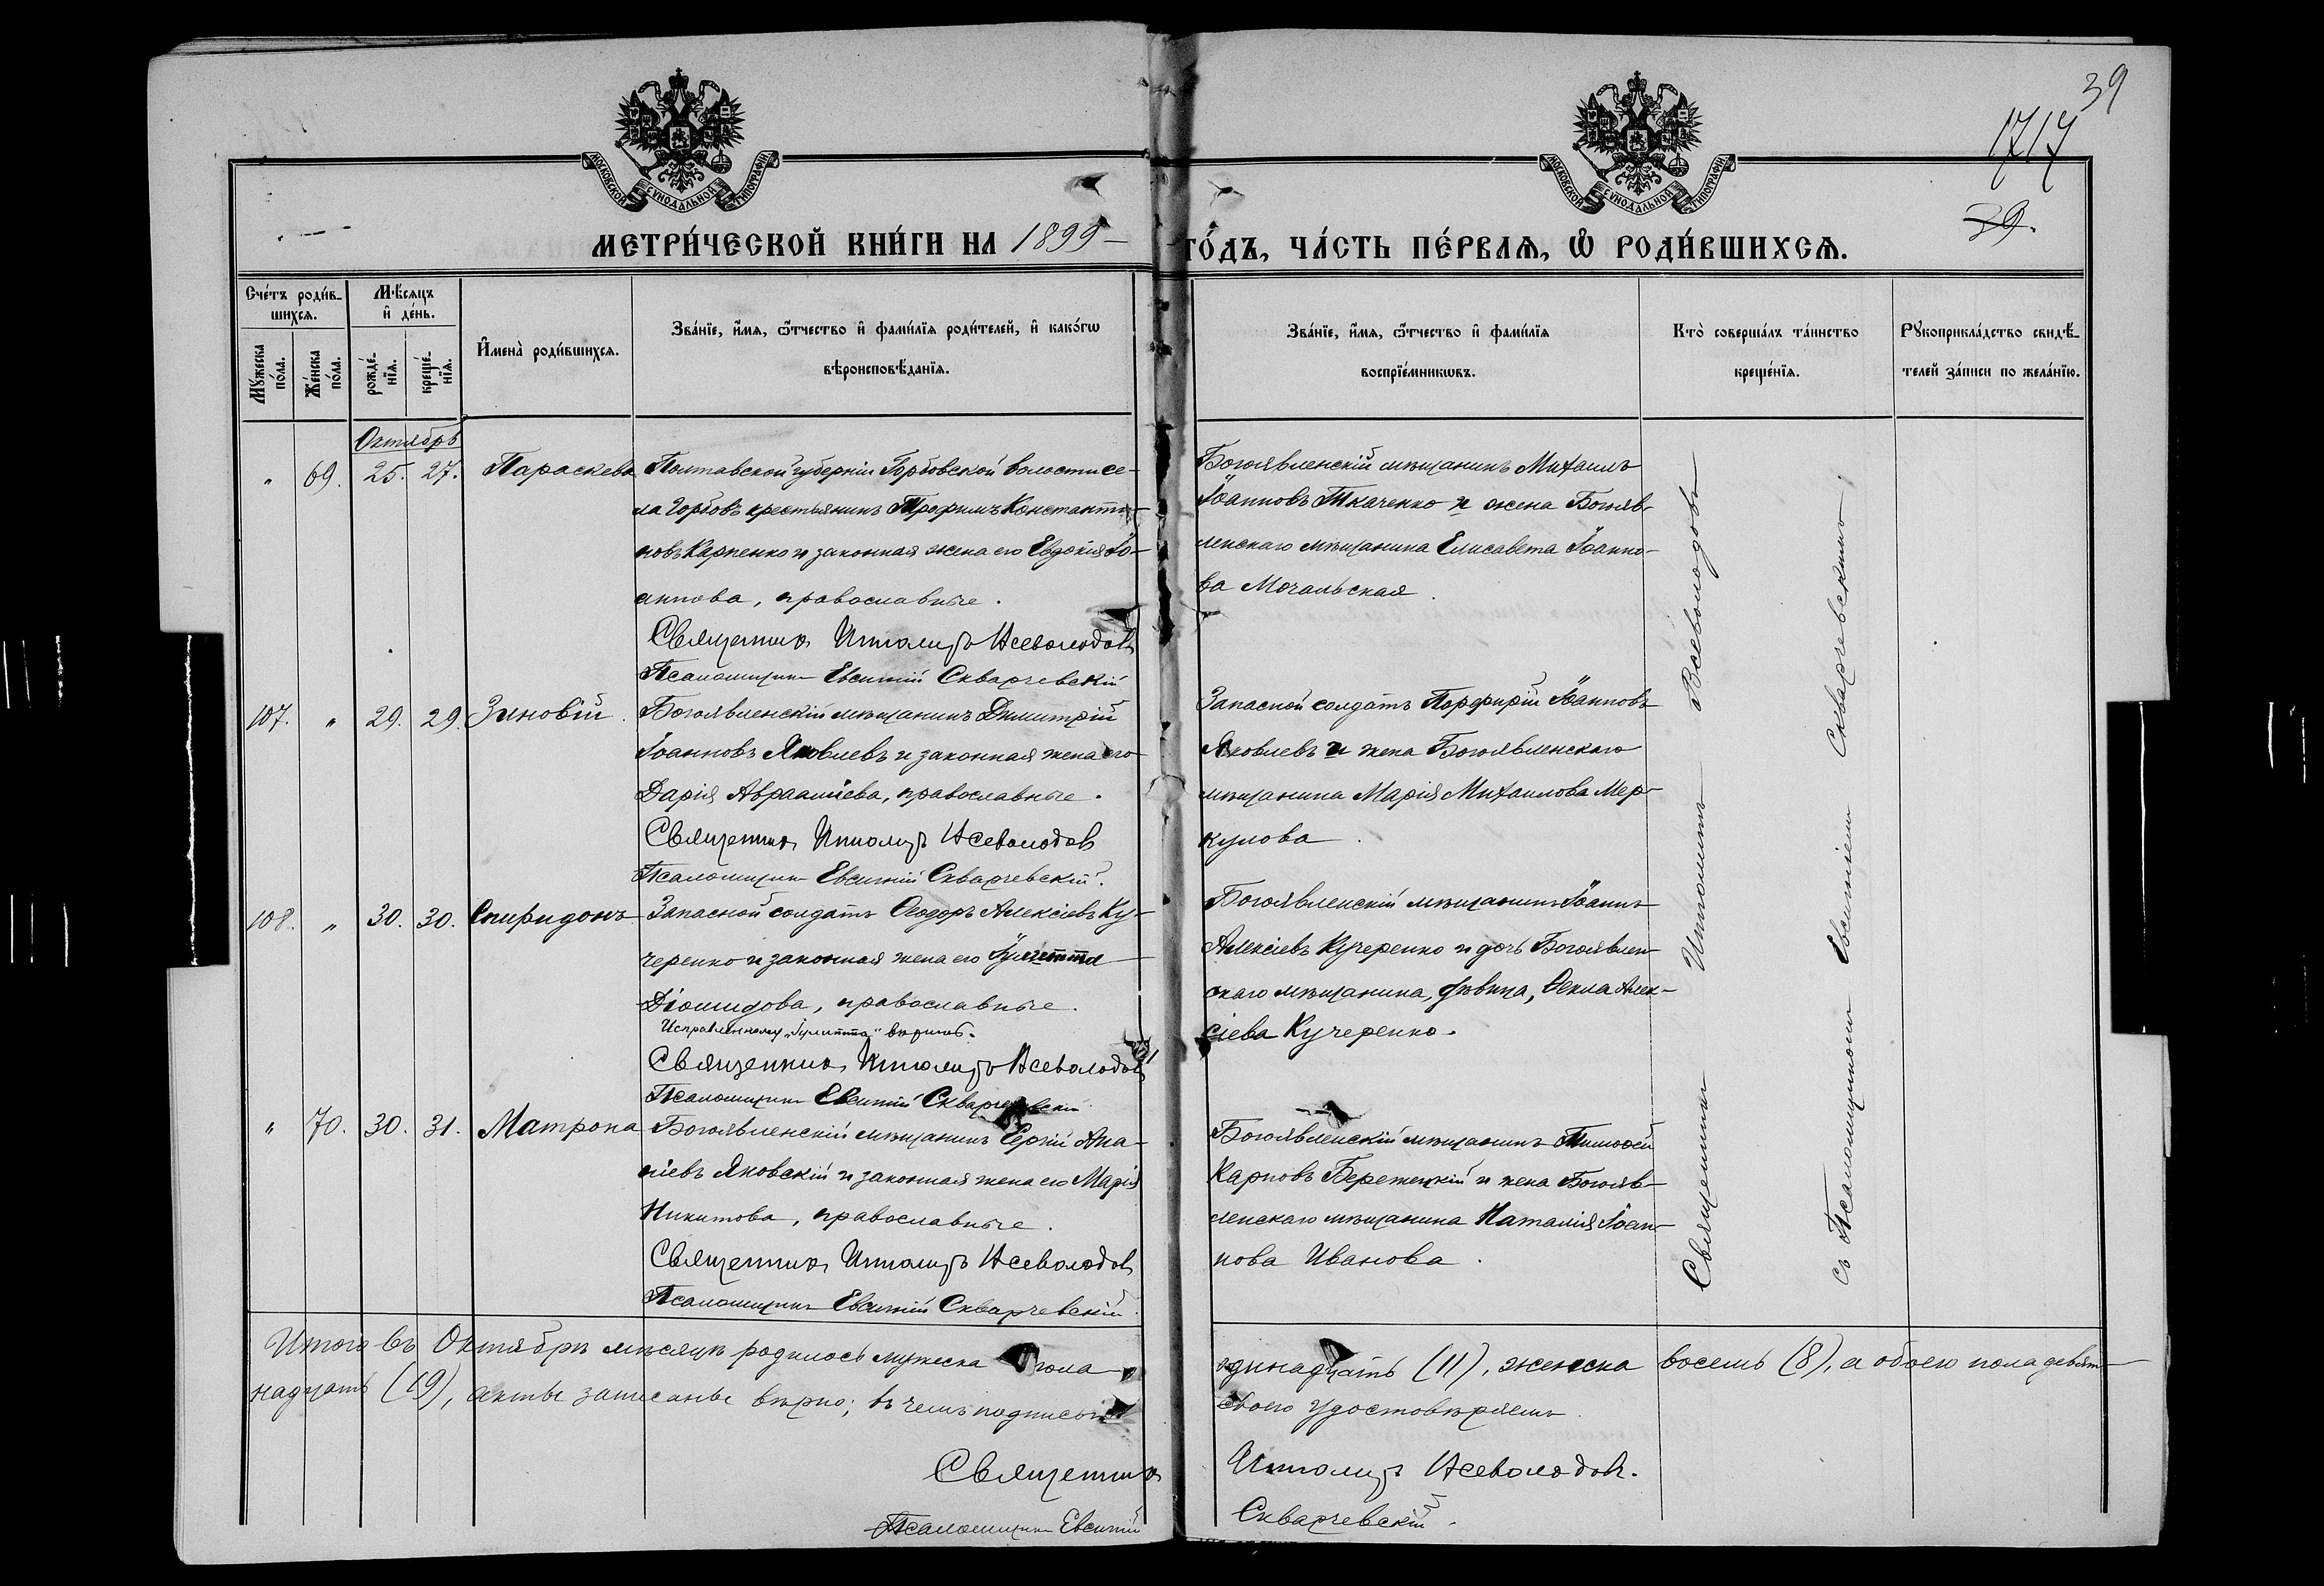 39
1717
39.
МОСКОВСКОЙ СѴНОДАЛЬНОЙ ТИПОГРАФІИ
МОСКОВСКОЙ СѴНОДАЛЬНОЙ ТИПОГРАФІИ
МЕТРИ́ЧЕСКОЙ КНИ́ГИ НА 1899 ГО́ДЪ, ЧА́СТЬ ПЕ́РВАѦ, Ѡ҆ РОДИ́ВШИХСѦ.
Сче́тъ роди́в-
шихсѧ.
Мѣ́сѧцъ
и҆ де́нь.
Мꙋ́жеска
по́ла.
Же́нска
по́ла.
рожде́-
нїѧ.
креще́-
нїѧ.
И҆мена̀ роди́вшихсѧ.
Зва́нїе, и҆́мѧ, ѻ҆́тчество и҆ фами́лїѧ роди́телей, и҆ како́гѡ
вѣроисповѣ́данїѧ.
Зва́нїе, и҆́мѧ, ѻ҆́тчество и҆ фами́лїѧ
воспрїе́мникѡвъ.
Кто̀ соверша́лъ та́инство
креще́нїѧ.
Рꙋкоприкла́дство свидѣ́-
телей за́писи по жела́нїю.
Октябрь
" 69. 25. 27. Параскева
Полтавской губерніи Горбовской волости се-
ла Горбовъ крестьянинъ Трофимъ Константи-
новъ Карпенко и законная жена его Евдокія Іо-
аннова, православные.
Священникъ Ипполитъ Всеволодовъ
Псаломщикъ Евсигній Скварчевскій
Богоявленскій мѣщанинъ Михаилъ
Іоанновъ Ткаченко и жена Богояв-
ленскаго мѣщанина Елисавета Іоанно-
ва Мочальская.
107. " 29. 29. Зиновій.
Богоявленскій мѣщанинъ Димитрій
Іоанновъ Яковлевъ и законная жена его
Дарія Авраамiева, православные.
Священникъ Ипполитъ Всеволодовъ
Псаломщикъ Евсигній Скварчевскій.
Запасной солдатъ Порфирій Іоанновъ
Яковлевъ и жена Богоявленскаго
мѣщанина Марія Михаилова Мер-
кулова.
108. " 30. 30. Спиридонъ
Запасной солдатъ Ѳеодоръ Алексіевъ Ку-
черенко и законная жена его Іулитта
Діомидова, православные.
Исправленному „Іулитта" вѣрить.
Священникъ Ипполитъ Всеволодовъ
Псаломщикъ Евсигній Скварчевскій
Богоявленскій мѣщанинъ Іоаннъ
Алексіевъ Кучеренко и дочь Богоявлен-
скаго мѣщанина, дѣвица, Ѳекла Алек-
сіева Кучеренко.
" 70. 30. 31. Матрона
Богоявленскій мѣщанинъ Сергій Ана-
ніевъ Яновскій и законная жена его Марія
Никитова, православные.
Священникъ Ипполитъ Всеволодовъ
Псаломщикъ Евсигній Скварчевскій.
Богоявленскій мѣщанинъ Тимоѳей
Карповъ Бережецкій и жена Богояв-
ленскаго мѣщанина Наталія Іоан-
нова Иванова.
Священникъ Ипполитъ Всеволодовъ
съ Псаломщикомъ Евсигніемъ Скварчевскимъ.
Итого въ Октябрѣ мѣсяцѣ родилось мужеска пола одинадцать (11), женска восемь (8), а обоего пола девят-
надцать (19), акты записаны вѣрно; въ чемъ подписью своею удостовѣряемъ.
Священникъ Ипполитъ Всеволодовъ.
Псаломщикъ Евсигній Скварчевскій.